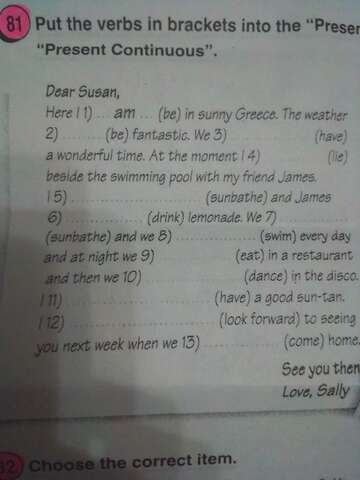 81 Put the verbs in brackets into the "Presen
"Present Continuous".
Dear Susan,
Here I 1) ... am ... (be) in sunny Greece. The weather
2) ........... (be) fantastic. We 3) ........................ (have)
a wonderful time. At the moment I 4) ................ (lie)
beside the swimming pool with my friend James.
I 5) .................................. (sunbathe) and James
6) .................. (drink) lemonade. We 7) ..................
(sunbathe) and we 8) ..................... (swim) every day
and at night we 9) ..................... (eat) in a restaurant
and then we 10) ......................... (dance) in the disco.
I 11) .................................... (have) a good sun-tan.
I 12) .................................... (look forward) to seeing
you next week when we 13) ..................... (come) home.
See you then
Love, Sally
82 Choose the correct item.